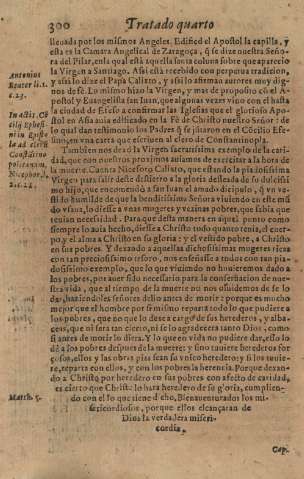 300 Tratado quarto
lleuada por los mismos Angeles. Edificò el Apostol la capilla, y
esta es la Camara Angelical de Zaragoça, q̃ se dize nuestra Seño-
ra del Pilar, en la qual está aquella santa coluna sobre que apareciò
la Virgen a Santiago. Assi està recebido con perpetua tradicion,
y assi lo dize el Papa Calixto, y assi lo afirman autores muy dig-
nos de fè. Lo mismo hizo la Virgen, y mas de proposito cõ el A-
postol y Euangelista san Iuan, que algunas vezes vino con el hasta
la ciudad de Efeso a confirmar las Iglesias que el glorioso Apos-
tol en Asia auia edificado en la Fè de Christo nuestro Señor: de
lo qual dan testimonio los Padres q̃ se jũtaron en el Cõcilio Efe-
sino, en vna carta que escriuen al clero de Constantinopla.
Tambien nos dexò la Virgen sacratissima exemplo de la cari-
dad, que con nuestros proximos auiamos de exercitar a la hora de
la muerte. Cuenta Nicesoro Calixto, que estando la piadosissima
Virgen para salir deste destierro a la gloria desseada de su dulcissi
mo hijo, que encomendò a san Iuan el amado dicipulo, q̃ vn ve-
stido humilde de que la benditissima Señora viuiendo en este mũ
do vsaua, lo diesse a vnas mugeres y vezinas pobres, que sabia que
tenian necessidad. Para que desta manera en aquel punto como
siempre lo auia hecho, diesse a Christo todo quanto tenia, el cuer-
po, y el alma a Christo en su gloria: y el vestido pobre, a Christo
en sus pobres. Y dexando a aquellas dichosissimas mugeres ricas
con tan preciosissimo tesoro, nos enseñasse a todos con tan pia-
dosissimo exemplo, que lo que viuiendo no huuieremos dado a
los pobres, por auer sido necessario para la conseruacion de nue-
stra vida, que al tiempo de la muerte no nos oluidemos de se lo
dar, haziendoles señores dello antes de morir: porque es mucho
mejor que el hombre por si mismo reparta todo lo que pudiere a
los pobres, que no que lo dexe a cargo de sus herederos, y albac-
eas, que ni sera tan cierto, ni se lo agradecera tanto Dios, como
si antes de morir lo diera. Y lo que en vida no pudiere dar, esto lo
dè a los pobres despues de la muerte: y sino tuuiere herederos for
çosos, ellos y las obras pias sean su vnico heredero; y si los tuuie-
re, reparta con ellos, y con los pobres la herencia. Porque dexan-
do a Christo por heredero en sus pobres con afecto de caridad,
es cierto que Christo lo hara heredero de su gloria, cumplien-
do con ello que tiene dicho, Bienauenturados los mi-
sericordiosos, porque ellos alcançaran de
Dios la verdadera miseri-
cordia.
Cap.
Antonius
Beuter li. 1.
c. 23.
In actis Cõ
cilij Ephesi
ni in Episto
la ad clerũ
Constantino
politanum.
Nicephor. l.
2. c. 21.
Matth. 5.